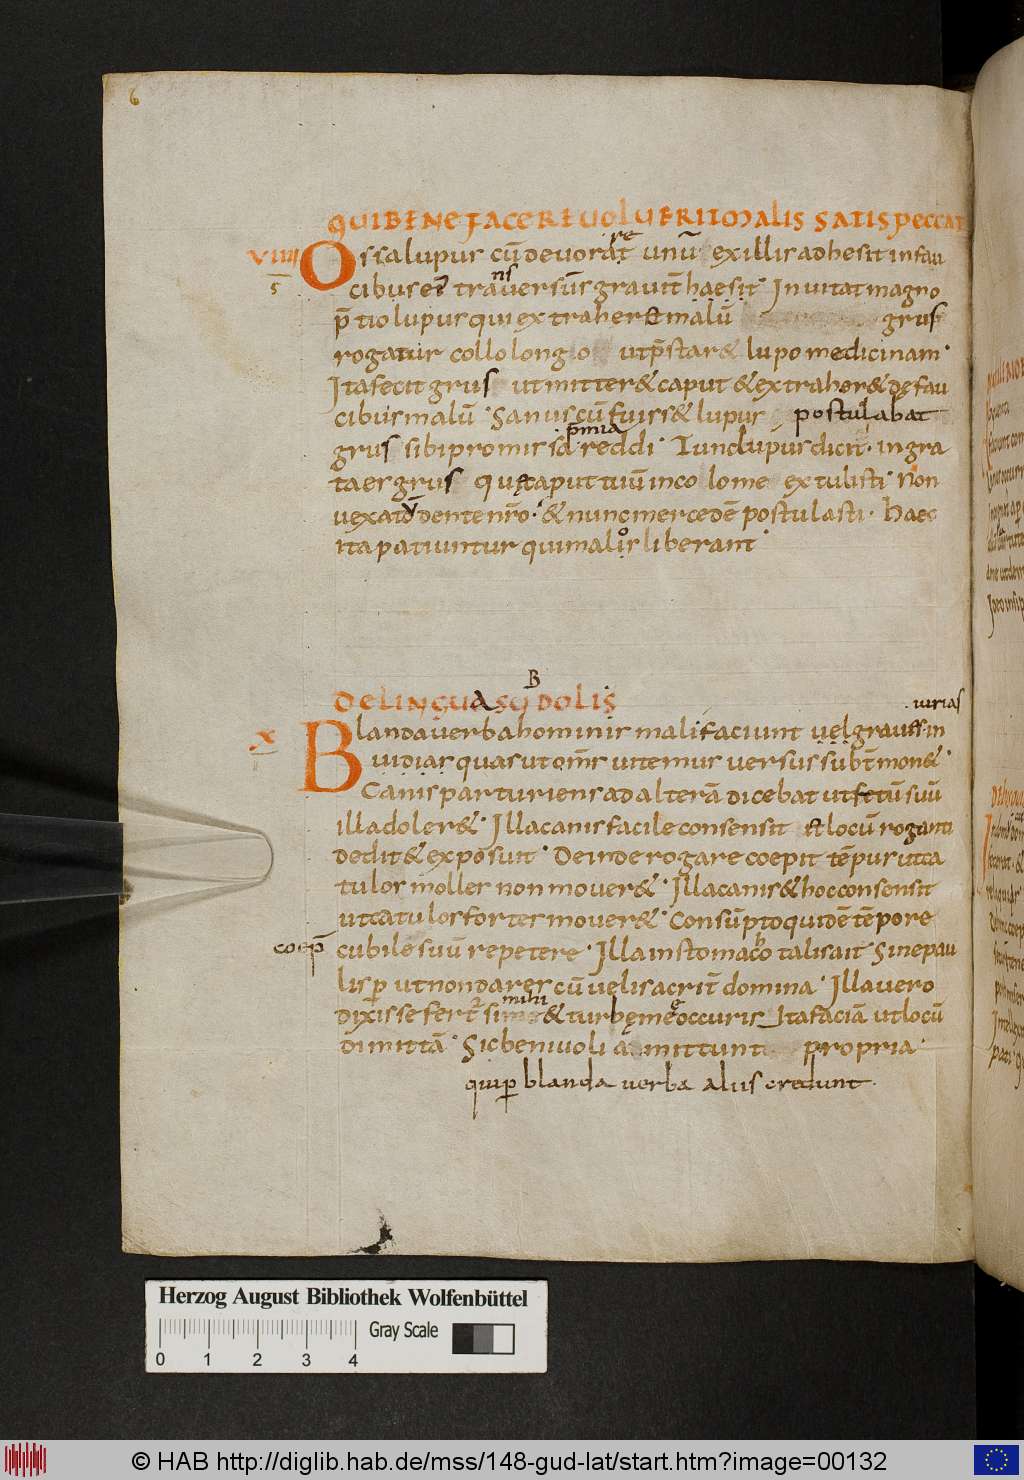 6
QUI BENE FACERE UOLUERIT MALIS SATIS PECCAT
VIIII
Ossa lupus cū deuorat unū ex illis adhesit in fau
re
cibus et trauersūs grauit̄ haesit Inuitat magno
ns
p̄tio lupus qui extraheret malū grus
rogatur collo longo ut p̄staret lupo medicinam.
Ita fecit grus ut mitter& caput & extraher& de fau
cibus malū. Sanus cū fuiss& lupus postulabat
grus sibi promissa reddi. Tunc lupus dicit. ingra
p̄mia
ta er grus quę caput tuū incolome extulisti. Non
uexatū dente nr̄o. & nunc mercedē postulasti. haec
ita patiuntur qui malos liberant.
DE LINGUA SC̄I DOLIS
B
iurias
X
Blanda uerba hominis mali faciunt uel graues in
uidias quas ut om̄s uitemus uersus subt̄ mon&.
Canis parturiens ad alterā dicebat ut fetū suū
illa doler&. Illa canis facile consensit et locū roganti
dedit & exposuit. Deinde rogare coepit tēpus ut ca
tulos molles non mouer&. Illa canis & hoc consensit
ut catulos fortes mouer&. Consūpto quidē tēpore
coep̄
cubile suū repetere. Illa in stomaco talis ait Sine pau
lisp ut non dares cū uelis acrit̄ domina. Illa uero
dixisse fert̄ si & turbę me occuris Ita faciā ut locū
mihi
dimittā. Sic beniuoli amittunt propria.
qui p blanda uerba aliis credunt.
Herzog August Bibliothek Wolfenbüttel
Gray Scale
0 1 2 3 4
© HAB http://diglib.hab.de/mss/148-gud-lat/start.htm?image=00132